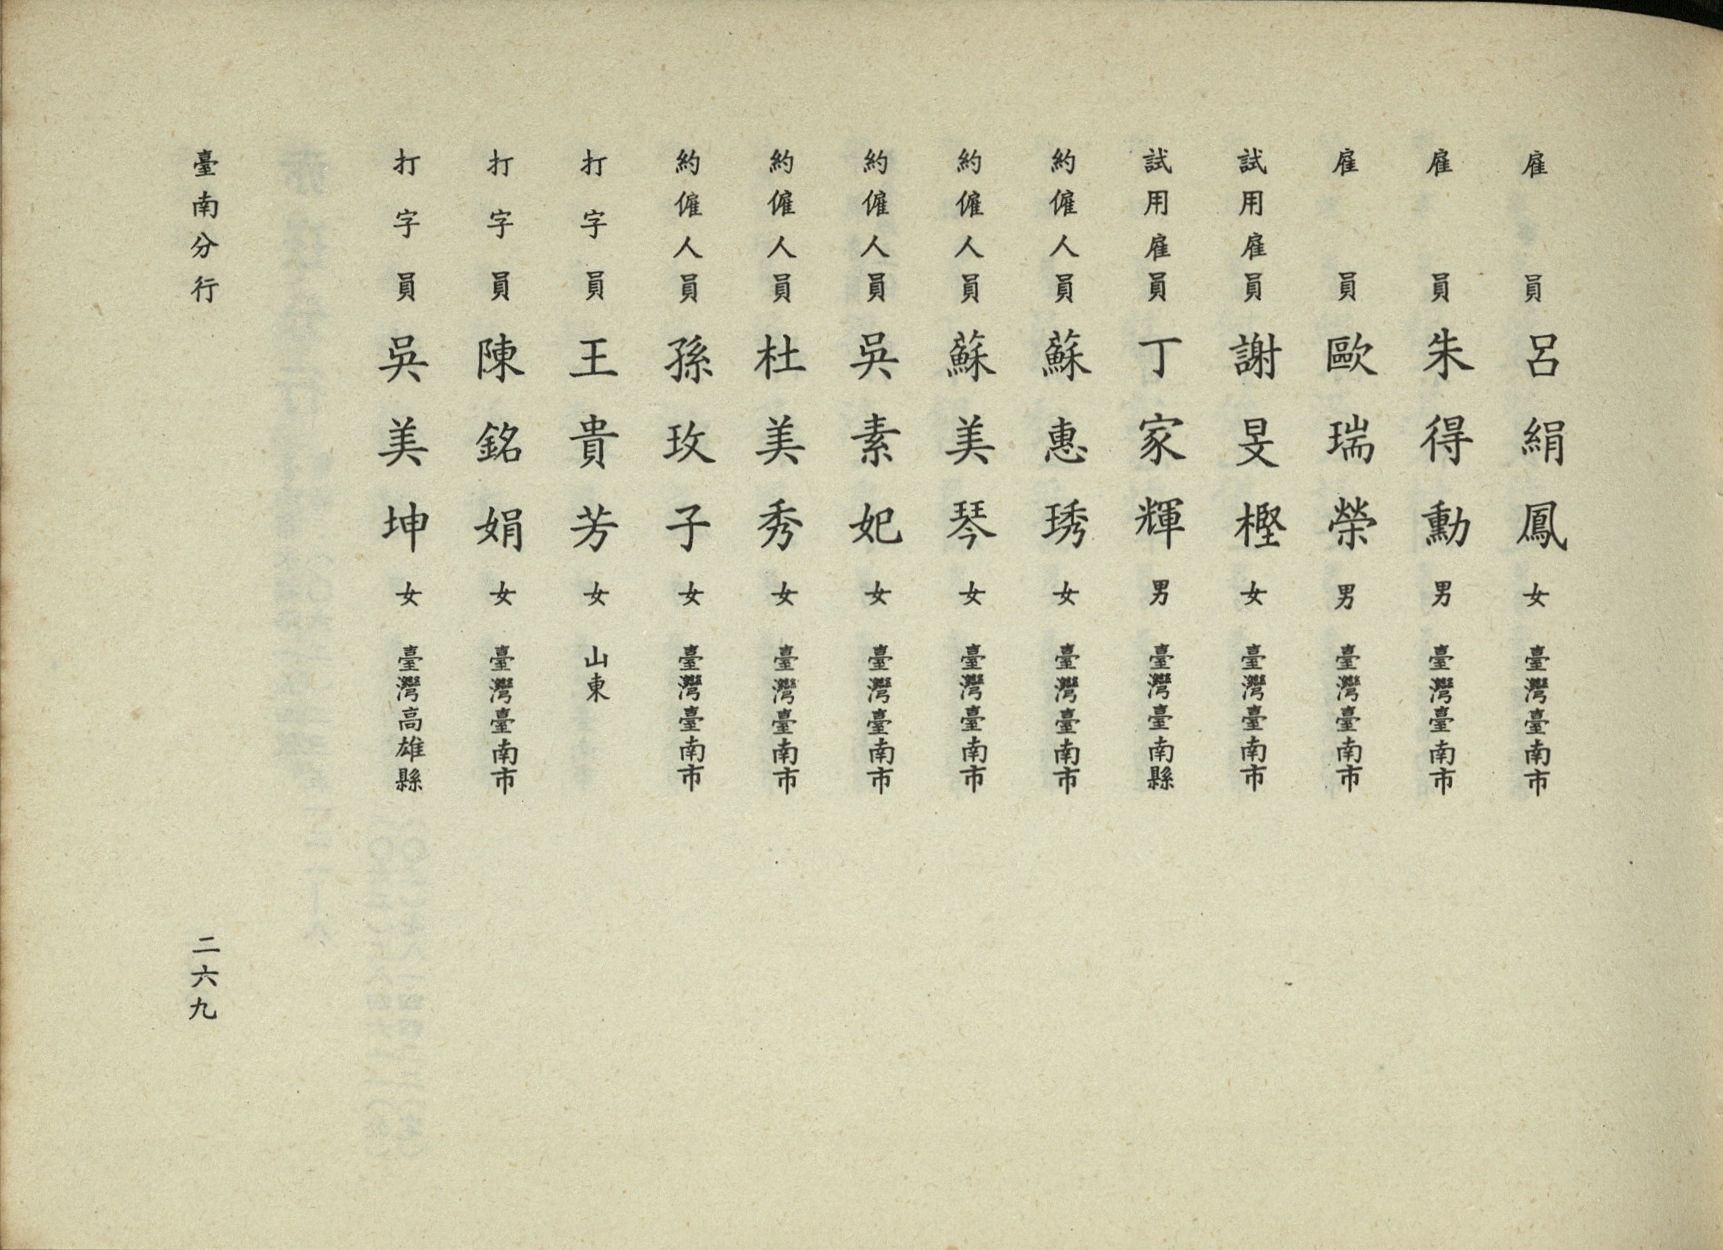 雇員呂絹鳳女臺灣臺南市
雇員朱得勳男臺灣臺南市
雇員歐瑞榮男臺灣臺南市
試用雇員謝旻樫女臺灣臺南市
試用雇員丁家輝男臺灣臺南縣
約僱人員蘇惠琇女臺灣臺南市
約僱人員蘇美琴女臺灣臺南市
約僱人員吳素妃女臺灣臺南市
約僱人員杜美秀女臺灣臺南市
約僱人員孫玫子女臺灣臺南市
打字員王貴芳女山東
打字員陳銘娟女臺灣臺南市
打字員吳美坤女臺灣高雄縣
臺南分行
二六九